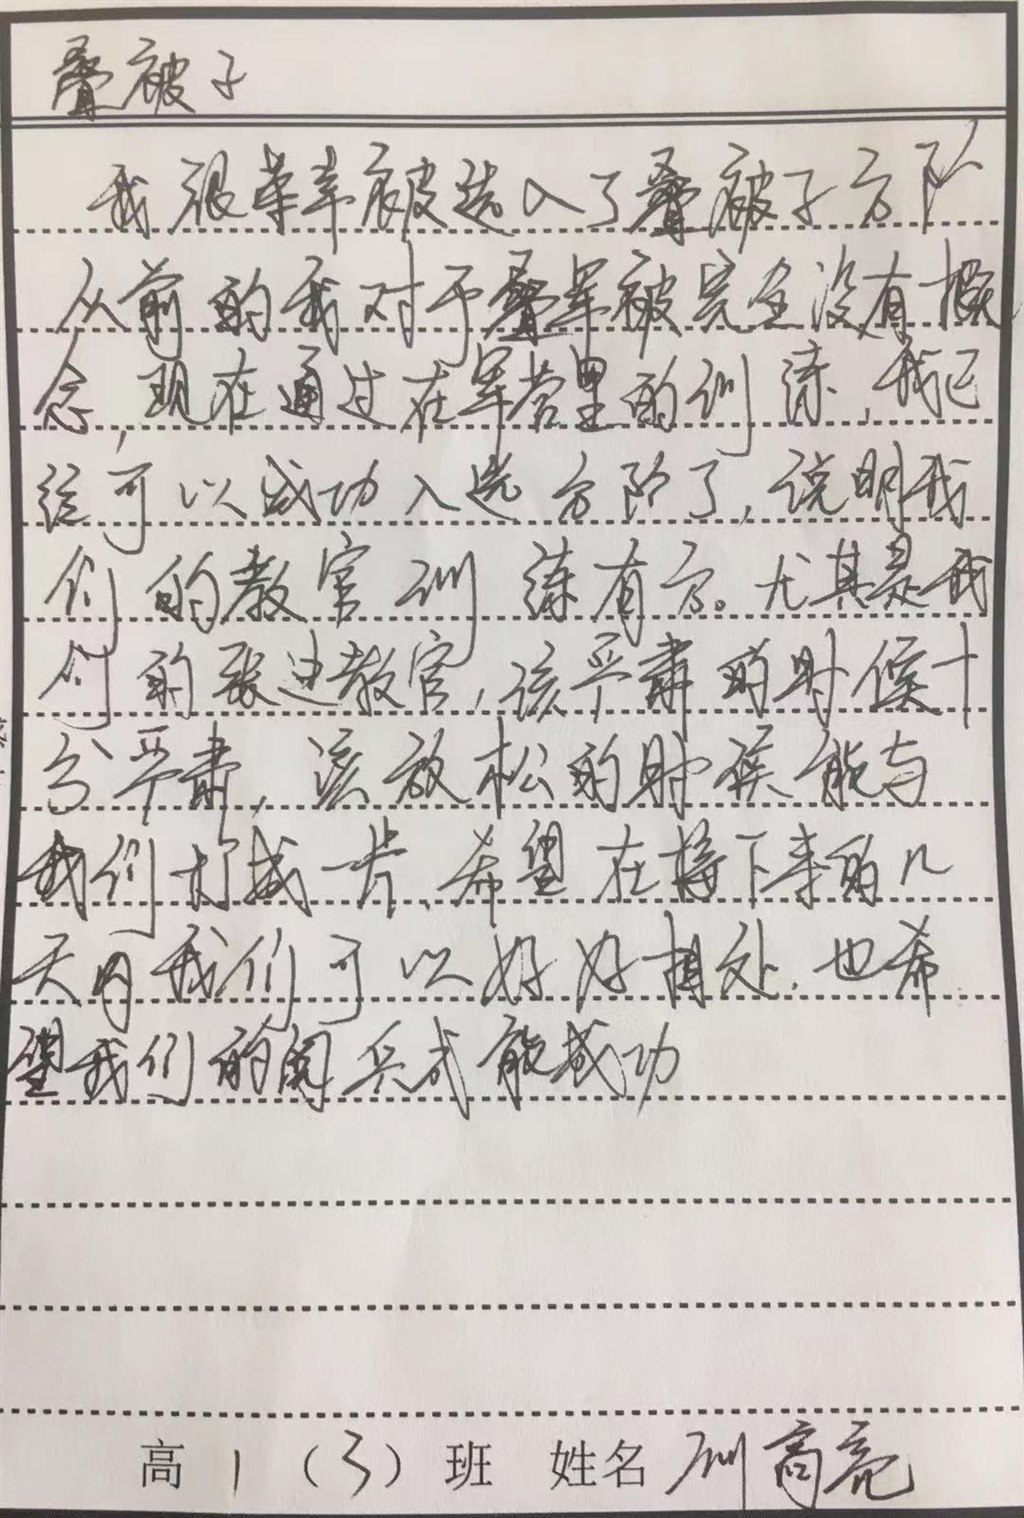 叠被子
我很荣幸被选入了叠被子方队
从前的我对于叠军被完全没有概
念,现在通过在军营里的训练,我已
经可以成功入选方阵了,说明我
们的教官训练有方。尤其是我
们的张进教官,该严肃的时候十
分严肃,该放松的时候能与
我们打成一片、希望在接下来的几
天内我们可以好好相处.也希
望我们的阅兵式能成功
高1(3)班 姓名